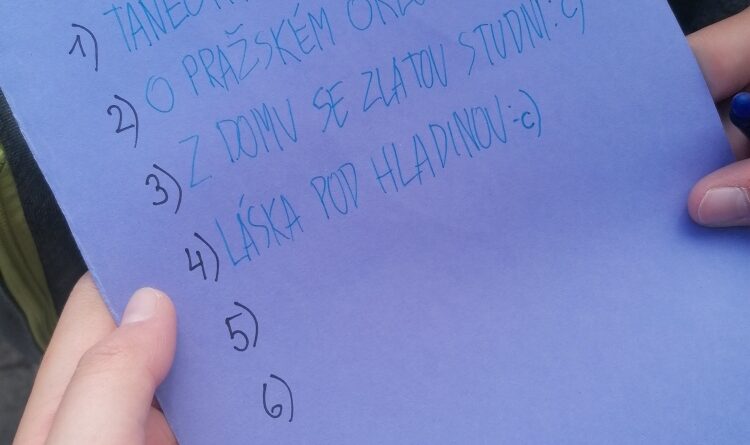 1)
2) O PRAŽSKÉM
3) Z DOMU SE ZLATOU STUDNÍ :c)
4) LÁSKA POD HLADINOU :c)
5)
6)